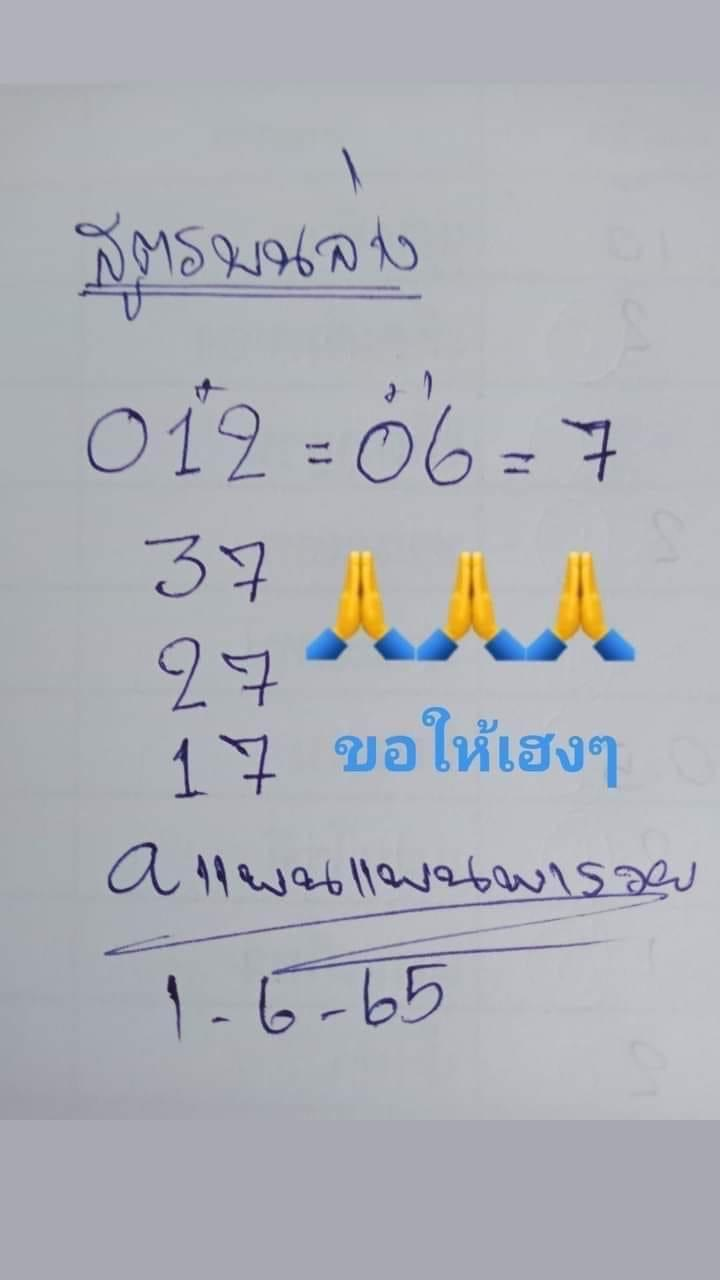 สูตรบนล่าง
012 = 06 = 7
37
27
17
ขอให้เฮงๆ
a แผนแผนพารวย
1-6-65